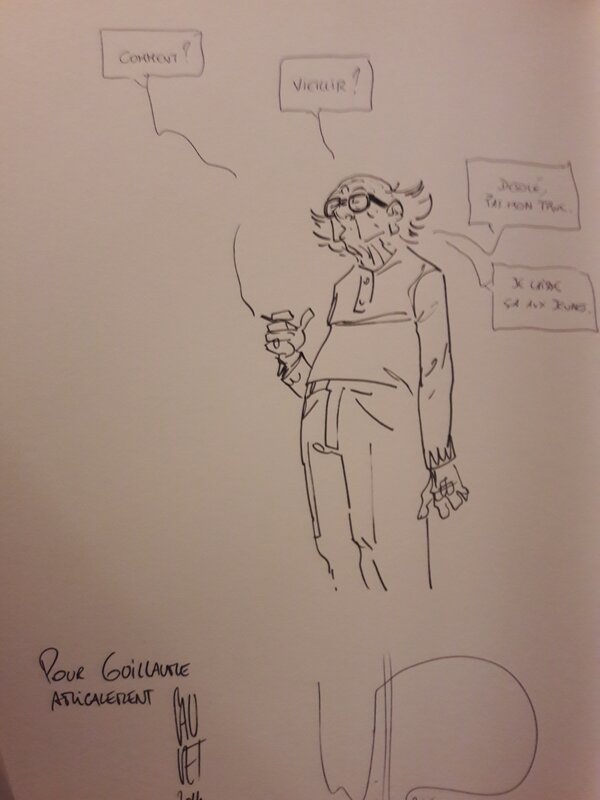 COMMENT ?
VIEILLIR ?
DÉSOLÉ,
J'AI MON TRUC.
JE LAISSE
ÇA AUX JEUNES.
POUR GUILLAUME
AMICALEMENT
CAU
UET